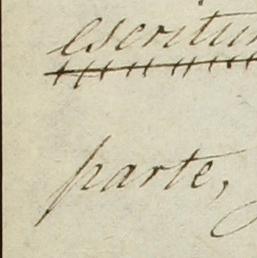 escritu
parte,